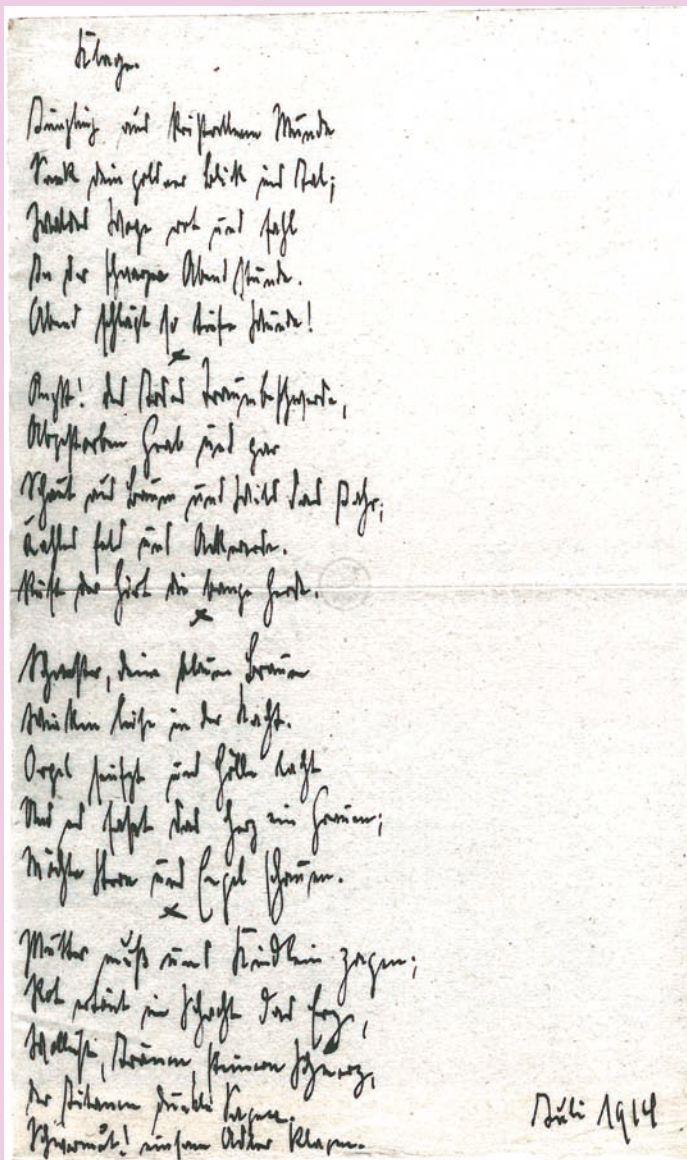 Klage.
Jüngling aus kristallnem Munde
Sank dein goldner Blick ins Tal;
Waldes Woge rot und fahl
In der schwarzen Abendstunde.
Abend schlägt so tiefe Wunde!
Angst! des Todes Traumbeschwerde,
Abgestorben Grab und gar
Schaut aus Baum und Wild das Jahr;
Kahles Feld und Ackererde.
Ruft der Hirt die bange Herde.
Schwester, deine blauen Brauen
Winken leise in der Nacht.
Orgel seufzt und Hölle lacht
Und es faßt das Herz ein Grauen;
Möchte Stern und Engel schauen.
Mutter muß ums Kindlein zagen;
Rot ertönt im Schacht das Erz,
Wollust, Tränen, steinern Schmerz,
Der Titanen dunkle Sagen.
Schwermut! einsam Adler klagen.
Juli 1914